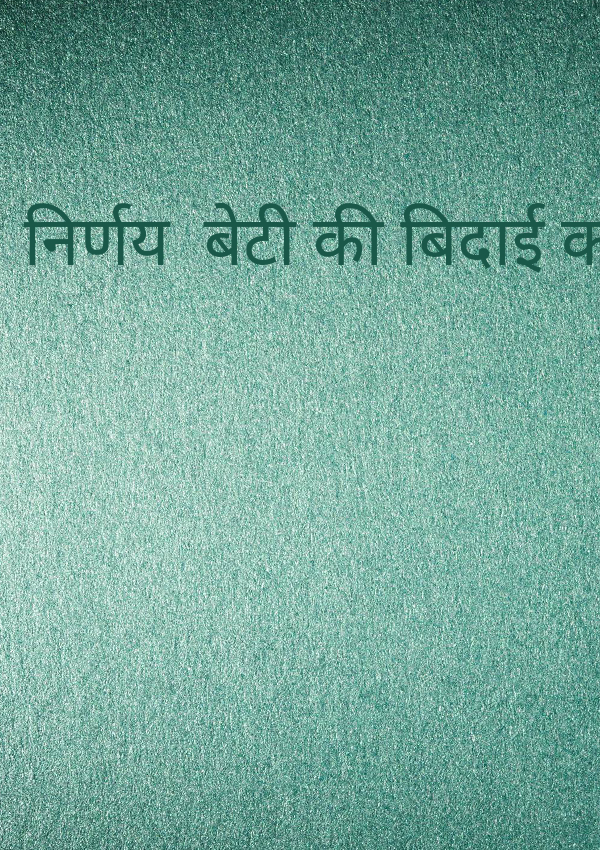 निर्णय बेटी की बिदाई